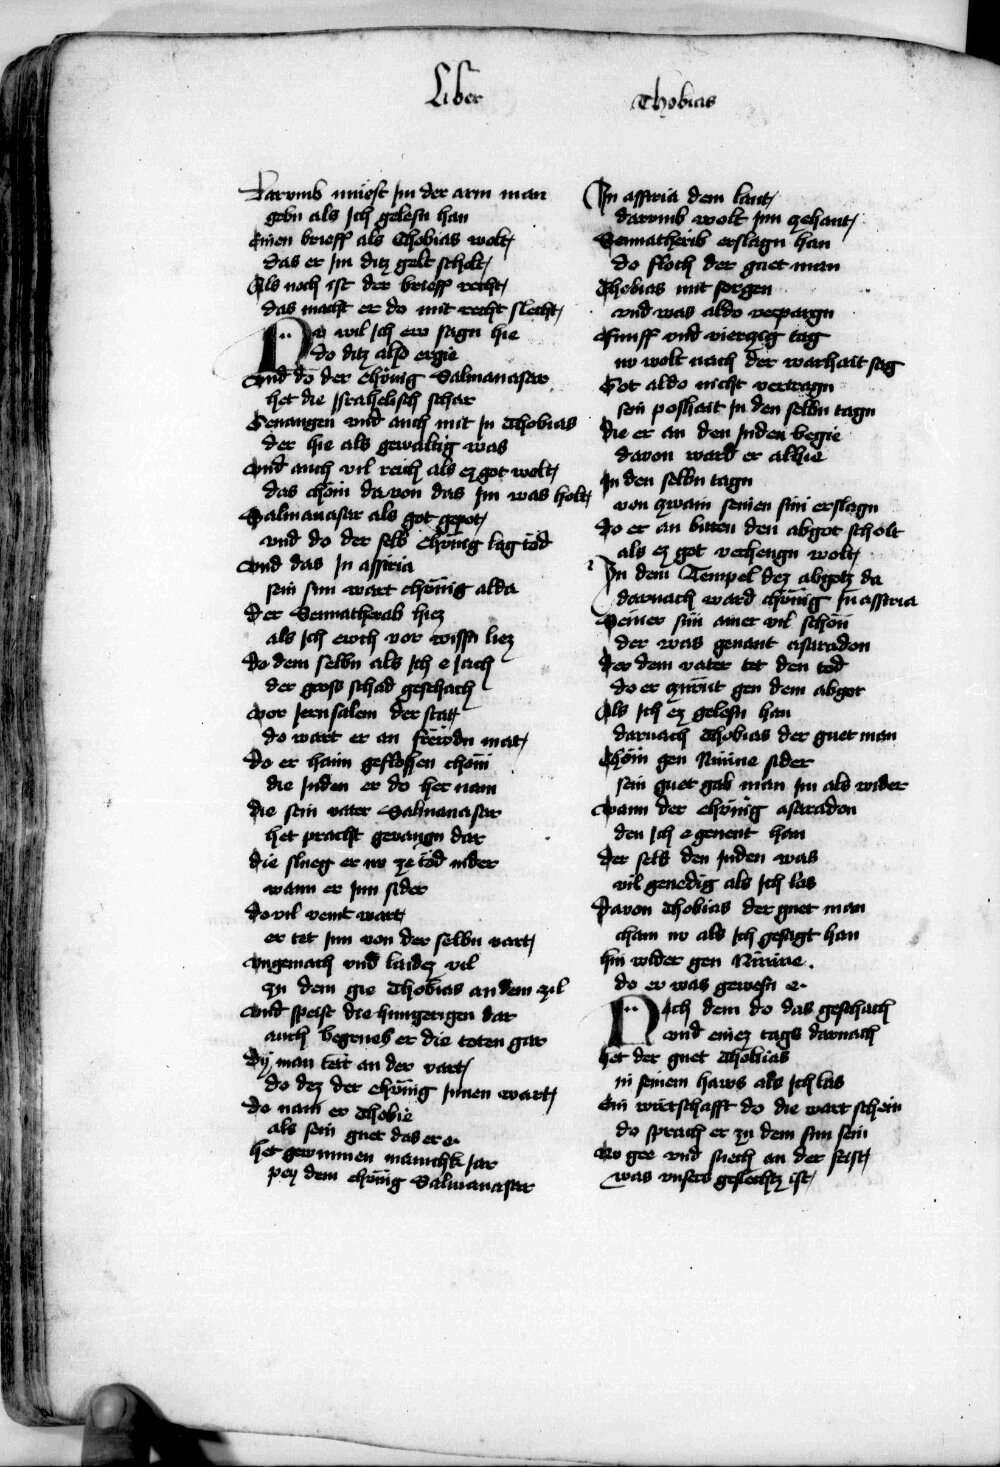 Liber Thobias
Darvmb müest Im der arm man
gebn als Ich gelesn han
Einen brieff als Thobias wolt
das er Im ditz gelt scholt
Als noch ist der brieff recht
das macht er do mit recht slecht
Nv wil Ich ew sagn hie
do ditz also ergie
Vnd do der chönig Salmanasar
het die Israhelisch schar
Geuangen vnd auch mit In Thobias
der hie als gewaltig was
Vnd auch vil reich als ez got wolt
das chom dauon das Im was holt
Salmanasar als got gepot
vnd do der selb chönig lag töd
Vnd das In assiria
sein sun wart chönig alda
Der Sennatherib hiez
als Ich ewch vor wissn liez
do dem selbn als Ich e Iach
der gross schad geschach
Vor Ierusalem der stat
do wart er an frewdn mat
Do er haim geflohen chom
die Iuden er do her nam
die sein vater Salmanasar
het pracht geuangn dar
die slueg er nv ze töd nider
wann er Inn sider
do vil veint wart
er tet Inn von der selbn vart
Vngemach vnd laidez vil
zu dem gie Thobias an dem zil
Vnd speist die hungerigen dar
auch begrueb er die toten gar
Dy man tett an der vart
do dez der chönig Innen wart
do nam er Thobie
als sein guet das er e
het gewunnen manichk Iar
pey dem chönig Salmanasar
In assiria dem lant
darvmb wolt Inn zehant
Sennatherib erslagn han
do floch der guet man
Thobias mit sorgen
vnd was aldo verpargn
Funff vnd vierczig tag
nv wolt nach der warhait sag
Got aldo nicht vertragn
sein poshait In den selbn tagn
die er an den Iuden begie
dauon ward er alhie
In den selbn tagn
von zwain seinen sün erslagn
do er an bitten den abgot scholt
als ez got verhengn wolt
In dem Tempel dez abgotz da
darnach ward chönig In assiria
Seiner sün ainer vil schön
der was genant asaradon
der dem vater tet den tod
do er gen dem abgot
Als Ich ez gelesn han
darnach Thobias der guet man
Chöm gen Niniue sider
sein guet gab man Im als wider
Wann der chönig asaradon
den Ich e genent han
der selb den Iuden was
vil genedig als Ich las
Dauon Thobias der guet man
cham nv als Ich gesagt han
hin wider gen Niniue.
do er was gewesn e.
Nach dem do das geschach
vnd einez tags darnach
het der guet Thobias
in seinem haws als Ich las
Ein wirtschafft do die wart schein
do sprach er zu dem sun sein
Nv gee vnd suech an der frist
was vnsers geslechtz ist